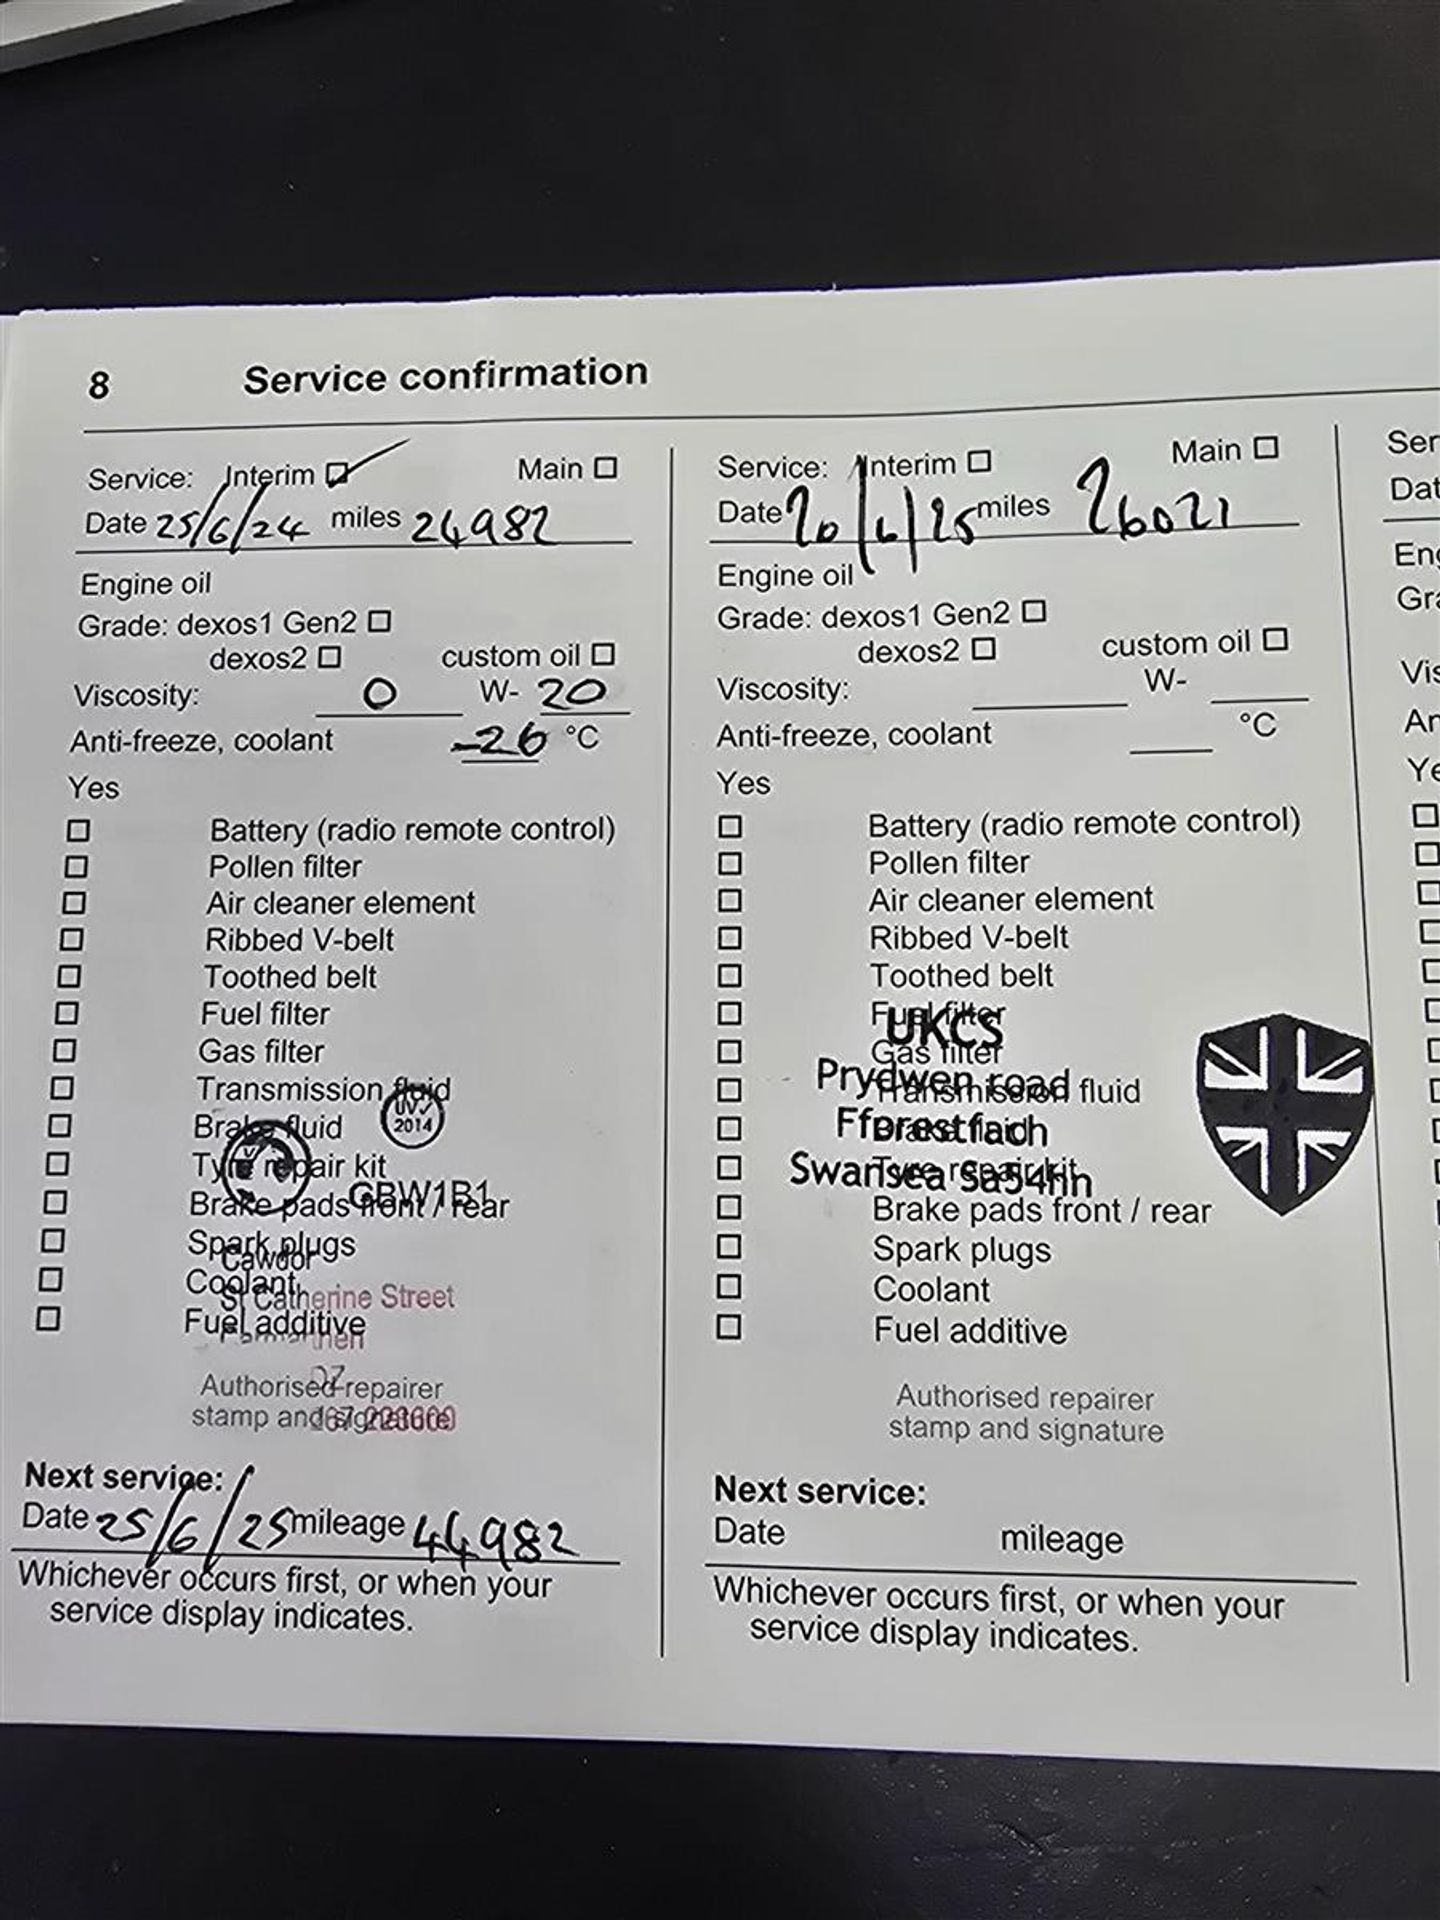 8 Service confirmation
Service: Interim Main
Date 25/6/24 miles 24982
Engine oil
Grade: dexos1 Gen2
dexos2 custom oil
Viscosity: 0 W- 20
Anti-freeze, coolant -26 °C
Yes
Battery (radio remote control)
Pollen filter
Air cleaner element
Ribbed V-belt
Toothed belt
Fuel filter
Gas filter
Transmission fluid
UV
2014
Brake fluid
Tyre repair kit
GBW1B1
Brake pads front / rear
Spark plugs
Cawdor
Coolant
St Catherine Street
Fuel additive
Authorised repairer
stamp and signature
Next service:
Date 25/6/25 mileage 44982
Whichever occurs first, or when your
service display indicates.
Service: Interim Main
Date 20/6/25 miles 26021
Engine oil
Grade: dexos1 Gen2
dexos2 custom oil
Viscosity: W-
Anti-freeze, coolant °C
Yes
Battery (radio remote control)
Pollen filter
Air cleaner element
Ribbed V-belt
Toothed belt
Fuel filter
UKCS
Gas filter
Prydwen road
Transmission fluid
Fforestfach
Brake fluid
Swansea Sa54hn
Tyre repair kit
Brake pads front / rear
Spark plugs
Coolant
Fuel additive
Authorised repairer
stamp and signature
Next service:
Date mileage
Whichever occurs first, or when your
service display indicates.
Ser
Dat
Eng
Gra
Vis
An
Ye